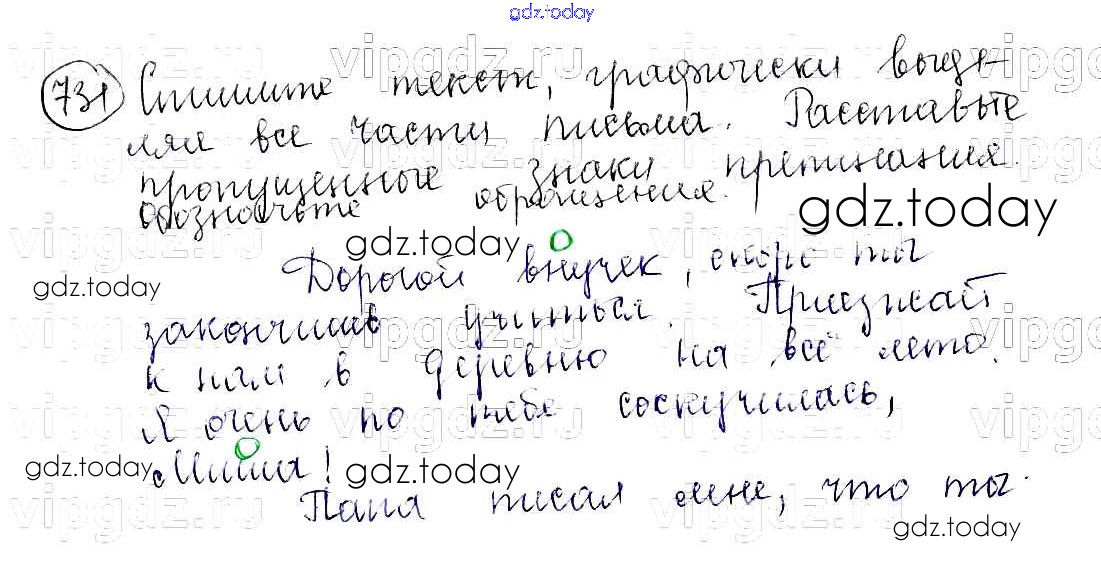 gdz.today
731 Спишите текст, графически выде-
ляя все части письма. Расставьте
пропущенные знаки препинания.
Обозначьте обращения.
gdz.today
gdz.today
Дорогой внучек, скоро ты
gdz.today
закончишь учиться. Приезжай
к нам в деревню на всё лето.
Я очень по тебе соскучилась,
Миша!
gdz.today
gdz.today
Папа писал мне, что ты
gdz.today